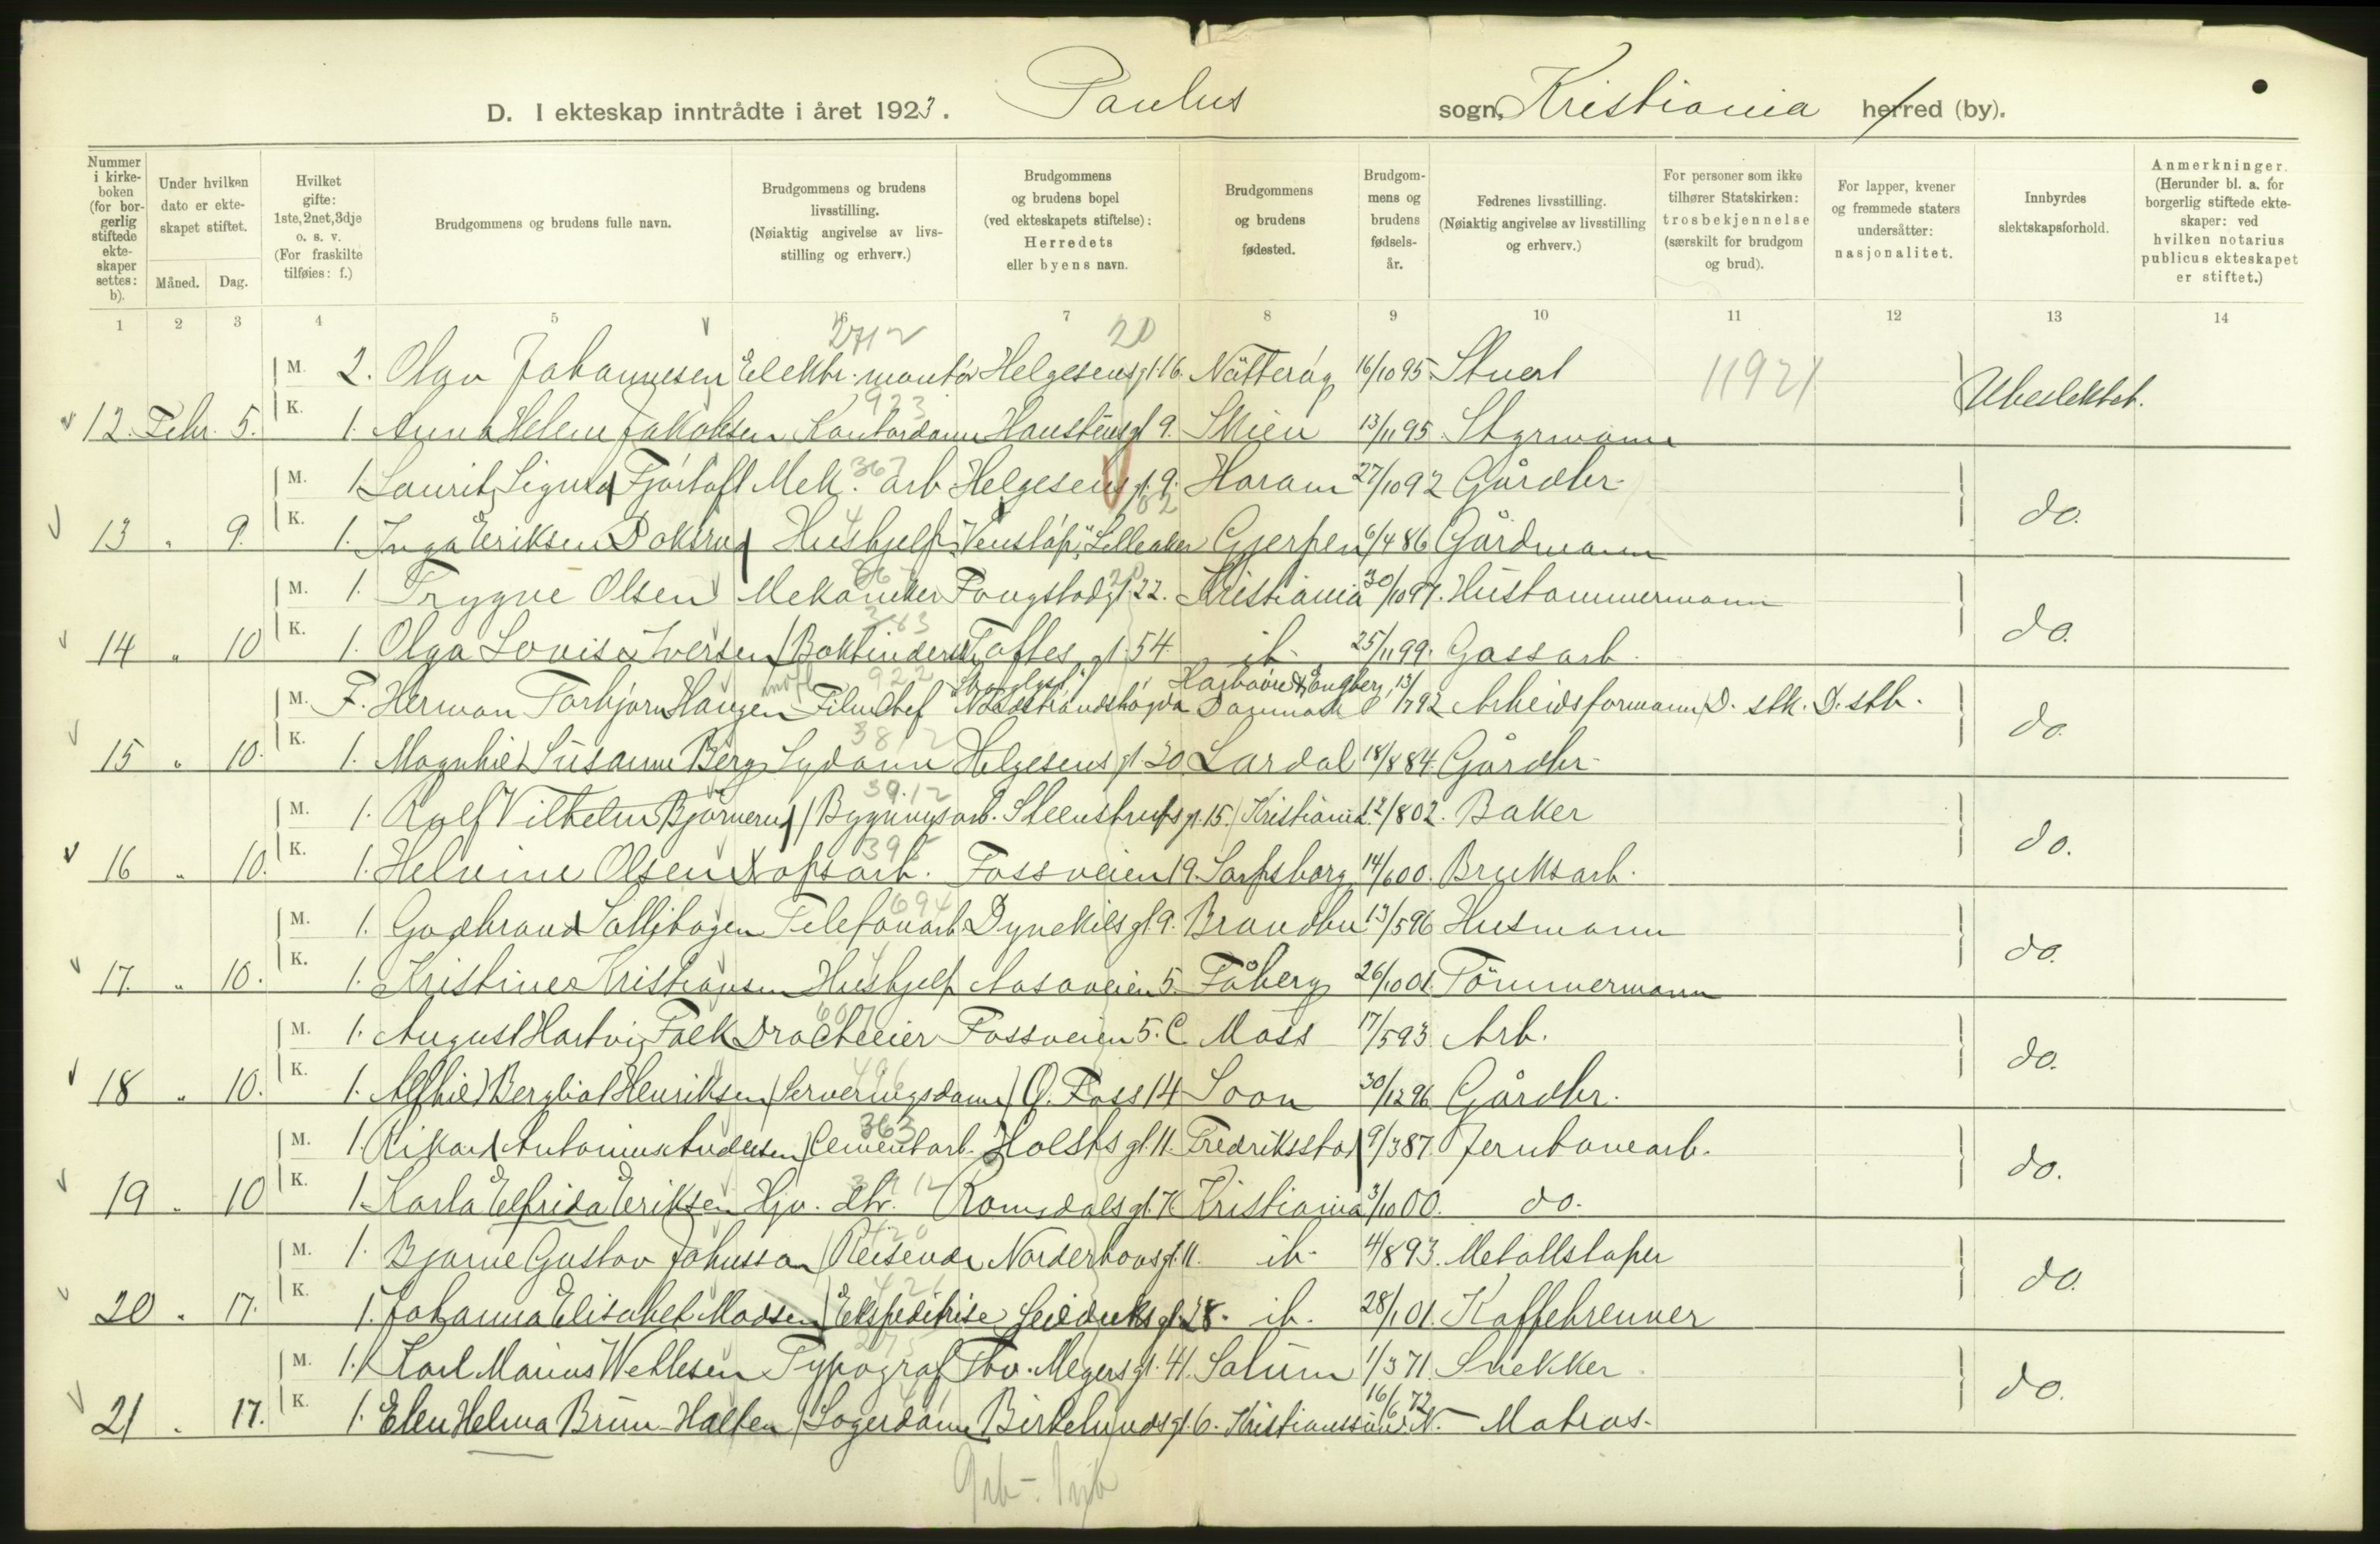 D. I ekteskap inntrådte i året 1923. Paulus sogn, Kristiania herred (by).
Nummer i kirkeboken (for borgerlig stiftede ekteskaper settes: b).
Under hvilken dato er ekteskapet stiftet.
Måned. Dag.
Hvilket gifte: 1ste, 2net, 3dje o. s. v. (For fraskilte tilføies: f.)
Brudgommens og brudens fulle navn.
Brudgommens og brudens livsstilling. (Nøiaktig angivelse av livsstilling og erhverv.)
Brudgommens og brudens bopel (ved ekteskapets stiftelse): Herredets eller byens navn.
Brudgommens og brudens fødested.
Brudgommens og brudens fødselsår.
Fedrenes livsstilling. (Nøiaktig angivelse av livsstilling og erhverv.)
For personer som ikke tilhører Statskirken: trosbekjennelse (særskilt for brudgom og brud).
For lapper, kvener og fremmede staters undersåtter: nasjonalitet.
Innbyrdes slektskapsforhold.
Anmerkninger. (Herunder bl. a. for borgerlig stiftede ekteskaper: ved hvilken notarius publicus ekteskapet er stiftet.)
1 2 3 4 5 6 7 8 9 10 11 12 13 14
2712 20
M. 2. Olav Johannesen Elektr. montör Helgesens gt. 16. Nötteröy 16/10 95 Stuert 11921 Ubeslektet.
923
12. Febr. 5. K. 1. Anna Helene Jakobsen Kontordame Haustens gt 9. Skien 13/11 95 Styrmann
367
M. 1 Laurits Sigurd Fjörtoft Mek. arb Helgesens gt. 9. Haram 27/10 92 Gårdbr.
13 " 9. K. 1. Inga Eriksen Doksrud Hushjelp "Venstöp", Lilleaker Gjerpen 6/4 86 Gårdmann do.
M. 1. Trygve Olsen Mekaniker Fougstads gt. 22. Kristiania 30/10 97. Hustømmermann
383
14 " 10 K. 1. Olga Lovise Iversen Bokbinderske Toftes gt. 54 ib. 25/11 99. Gassarb. do.
922
M. F. Herman Torbjørn Haugen Film Chef Nordstrandshögda Harboöre Engberg Danmark 13/1 92 Arbeidsformann D. stk. D. stb.
3812
15 " 10. K. 1. Magnhild Susanne Berg Sydame Helgesens gt. 20 Lardal 18/8 84. Gårdbr. do.
3912
M. 1. Rolf Vilhelm Bjørnerud Bygningsarb. Steenstrups gt. 15. Kristiania 12/8 02. Baker
395
16 " 10. K. 1. Helvine Olsen Kopsarb. Fossveien 19. Sarpsborg 14/6 00. Bruksarb. do.
694
M. 1. Gudbrand Sollihagen Telefonarb Dynekils gt. 9. Brandbu 13/5 96 Husmann
17. " 10. K. 1. Kristine Kristiansen Hushjelp Aasaveien 5. Fåberg 26/10 01. Tömmermann do.
M. 1. August Hartvig Falk Drachteier Fossveien 5. C Moss 17/5 93 Arb.
18 " 10. K. 1. Alfhild Bergliot Henriksen Serveringsdame O. Foss 14 Soon 30/12 96 Gårdbr. do.
363
M. 1. Rikard Antonius Andersen Cementarb. Holsts gt. 11. Fredrikstad 9/3 87. Jernbanearb.
19 " 10 K. 1. Karla Elfrida Eriksen Hjv. dtr. Romsdals gt. Kristiania 3/10 00. do. do.
420
M. 1. Bjarne Gustav Johnsson Reisende Norderhovs gt. 11. ib. 4/8 93. Metallstøper
421
20 " 17. K. 1. Johanna Elisabet Madsen Ekspeditrise Seilduks gt. 28. ib. 28/1 01. Kaffebrenner do.
M. 1. Karl Marius Wetlesen Typograf Tov. Megers gt. 41. Solum 1/3 71. Snekker
21 " 17. K. 1. Elen Helma Brun-Halten Lagerdame Birkelunds gt. 6. Kristianssund N. 16/6 72 Matros. do.